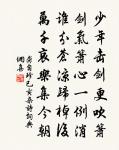 少年擊劍更吹簫
劍氣簫心一例消
誰分蒼涼歸棹後
萬千哀樂集今朝
龔自珍己亥雜詩詞典
網集